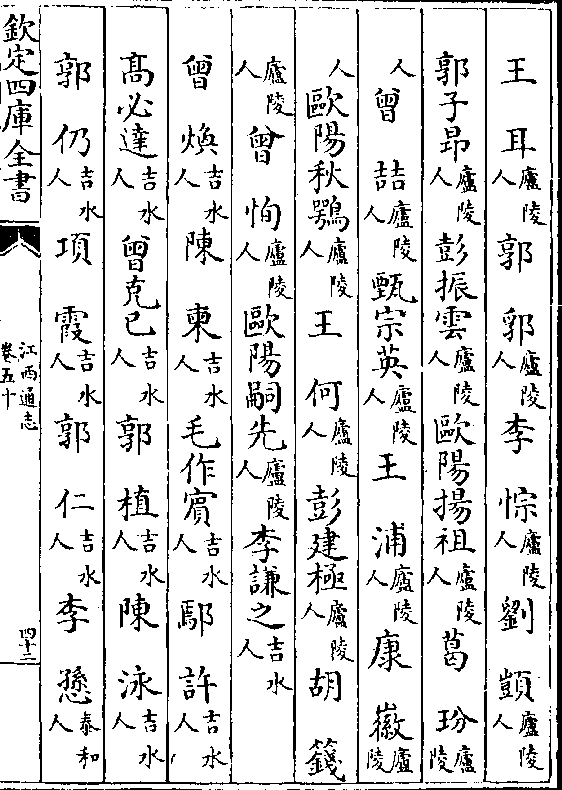 王耳廬陵人郭郛廬陵人李悰廬陵人劉顗廬陵人
郭子昂廬陵人彭振雲廬陵人歐陽揚祖廬陵人葛玢廬陵
人曾喆廬陵人甄宗英廬陵人王浦廬陵人康徽廬陵
人歐陽秋鶚廬陵人王何廬陵人彭建極廬陵人胡籛
廬陵人曾恂廬陵人歐陽嗣先廬陵人李謙之吉水人
曾煥吉水人陳東吉水人毛作賓吉水人鄢許吉水人
高必達吉水人曾克已吉水人郭植吉水人陳泳吉水人
郭仍吉水人項霞吉水人郭仁吉水人李㦤泰和人
欽定四庫全書
江西通志
卷五十
四十二